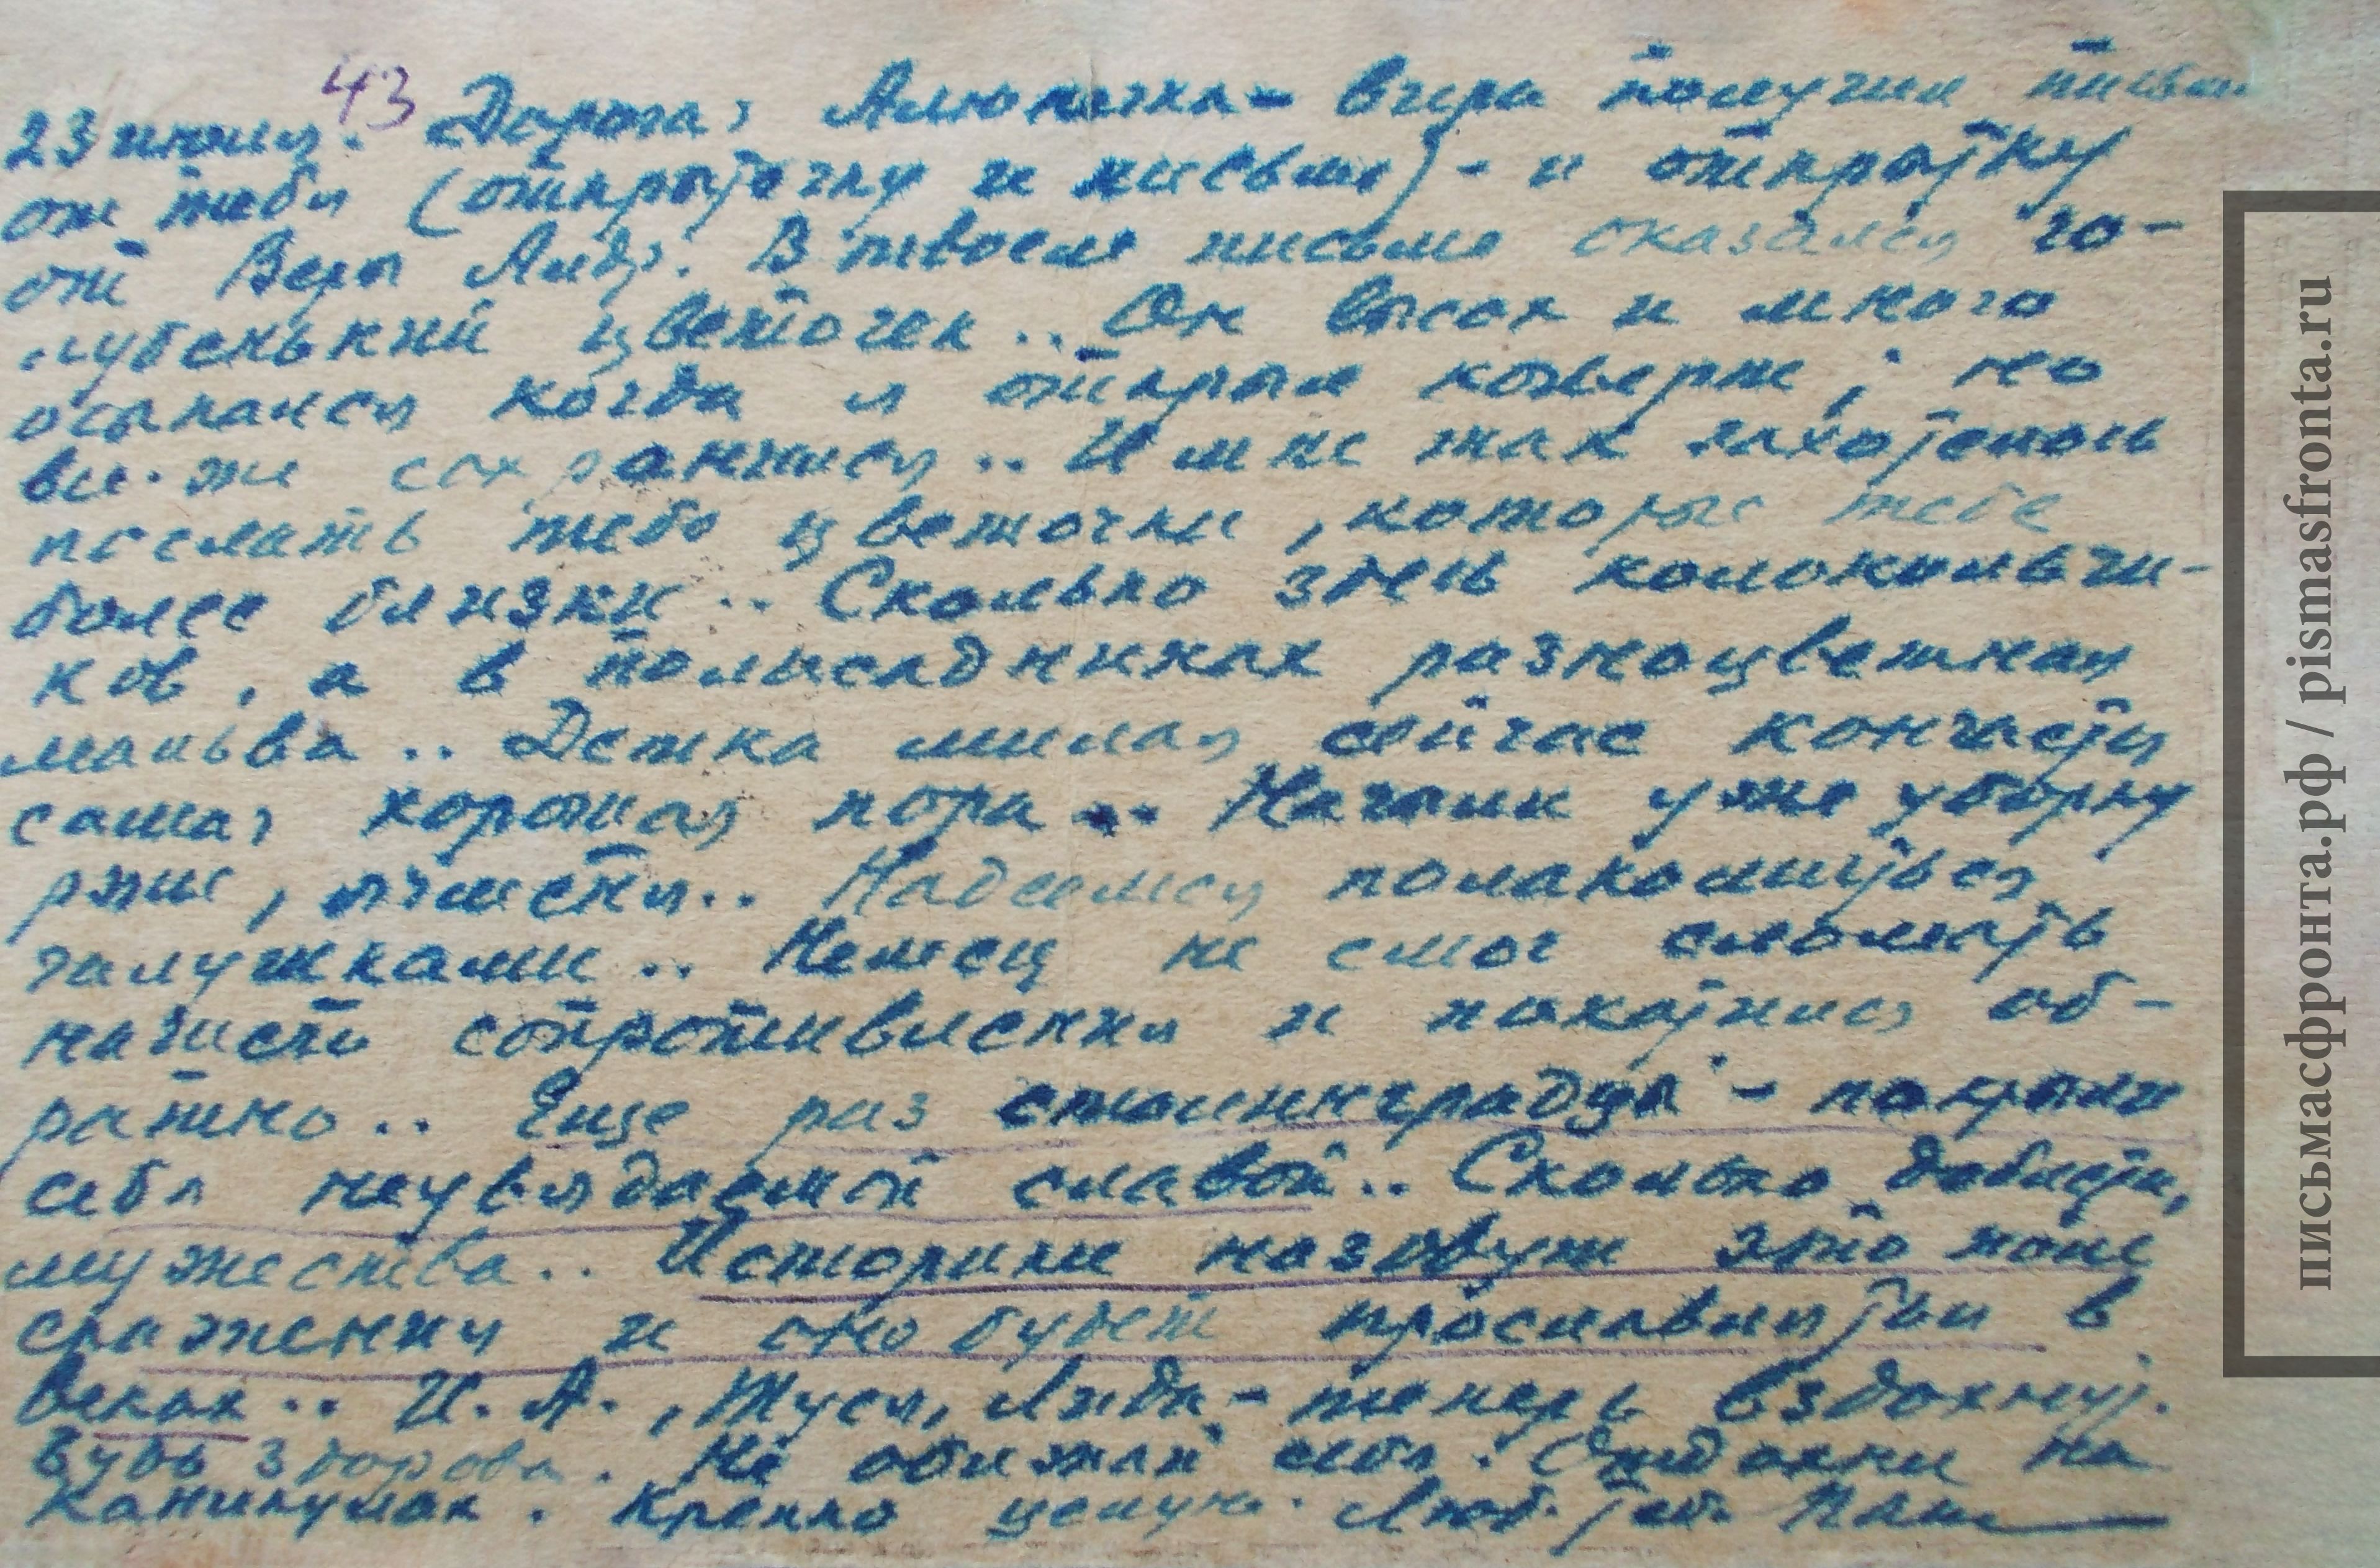 43
23 июля. Дорогая Алюнечка - вчера получил письм
от тебя (открыточку и письмо) - и открытку
от Веры Андр. В твоем письме оказался го-
лубенький цветочек.. Он высох и много
осыпался когда я открыл конверт; но
все же сохранился.. И мне так захотелось
послать тебе цветочки, которые тебе
более близки.. Сколько здесь колокольчи-
ков, а в полисадниках разноцветная
мальва.. Детка милая сейчас кончается
самая хорошая пора.. Начали уже уборку
ржи, ячменя.. Надеемся полакомиться
галушками.. Немец не смог сломать
нашего сопротивления и покатился об-
ратно.. Еще раз сталинградцы - покрыли
себя неувядаемой славой.. Сколько доблести,
мужества.. Историки назовут это поле
сражения и оно будет прославляться в
веках.. И. А., Туся, Лида - теперь вздохнут.
Будь здорова. Не обижай себя. Отдохни на
каникулах. Крепко целую. Люб. теб. Папа
письмасфронта.рф / pismasfronta.ru